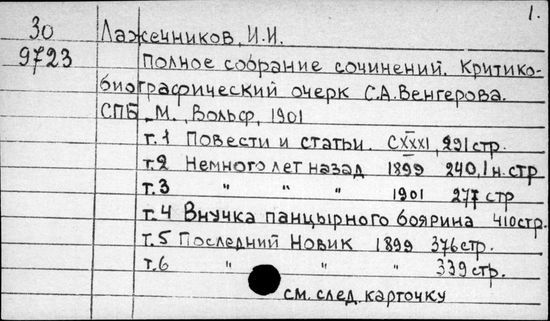 1.
30 Лажечников, И.И.
9723 Полное собрание сочинений. Критико-
биографический очерк С.А.Венгерова.
СПБ_М., Вольф, 1901
т.1 Повести и статьи. CXXXI, 291 стр.
т.2 Немного лет назад 1899 240,1 н.стр
т.3 " " " 1901 277 стр
т.4 Внучка панцырного боярина 410стр.
т.5 Последний Новик 1899 376стр.
т.6 " " " 339стр.
см. след. карточку